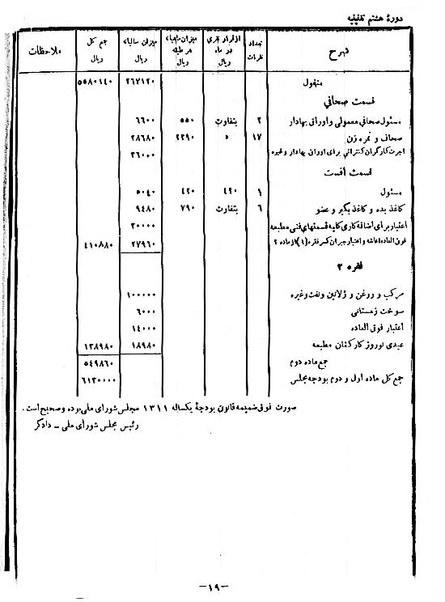 دورهٔ هشتم تقنینیه
شرح | تعداد نفرات | از قرار نفری در ماه ریال | میزان ماهیانه هر طبقه ریال | میزان سالیانه ریال | جمع کل ریال | ملاحظات
منقول ۲۶۷۱۲۰ ۵۵۸۰۱۴۰
قسمت صحافی
مسئول صحافی معمولی و اوراق بهادار ۲ بتفاوت ۵۵۰ ۶۶۰۰
صحاف و نمره زن ۱۷ » ۲۳۹۰ ۲۸۶۸۰
اجرت کارگران کنتراتی برای اوراق بهادار و غیره ۳۶۰۰۰
قسمت افست
مسئول ۱ ۴۲۰ ۴۲۰ ۵۰۴۰
کاغذ بده و کاغذ بگیر و عضو ۶ بتفاوت ۷۹۰ ۹۴۸۰
اعتبار برای اضافه کاری کلیه قسمتهای فنی مطبعه ۳۰۰۰۰
فوق العاده اعاشه و اعتبار جبران کسر فقره (۱) از ماده ۲ ۲۷۹۶۰ ۴۱۰۸۸۰
فقره ۲
مرکب و روغن و ژلاتین و نفت و غیره ۱۰۰۰۰۰
سوخت زمستانی ۶۰۰۰
اعتبار فوق العاده ۱۴۰۰۰
عیدی نوروز کارکنان مطبعه ۱۸۹۸۰ ۱۳۸۹۸۰
جمع ماده دوم ۵۴۹۸۶۰
جمع کل ماده اول و دوم بودجه مجلس ۶۱۳۰۰۰۰
صورت فوق ضمیمه قانون بودجهٔ یکساله ۱۳۱۱ مجلس شورای ملی بوده و صحیح است.
رئیس مجلس شورای ملی - دادگر
-۱۹-